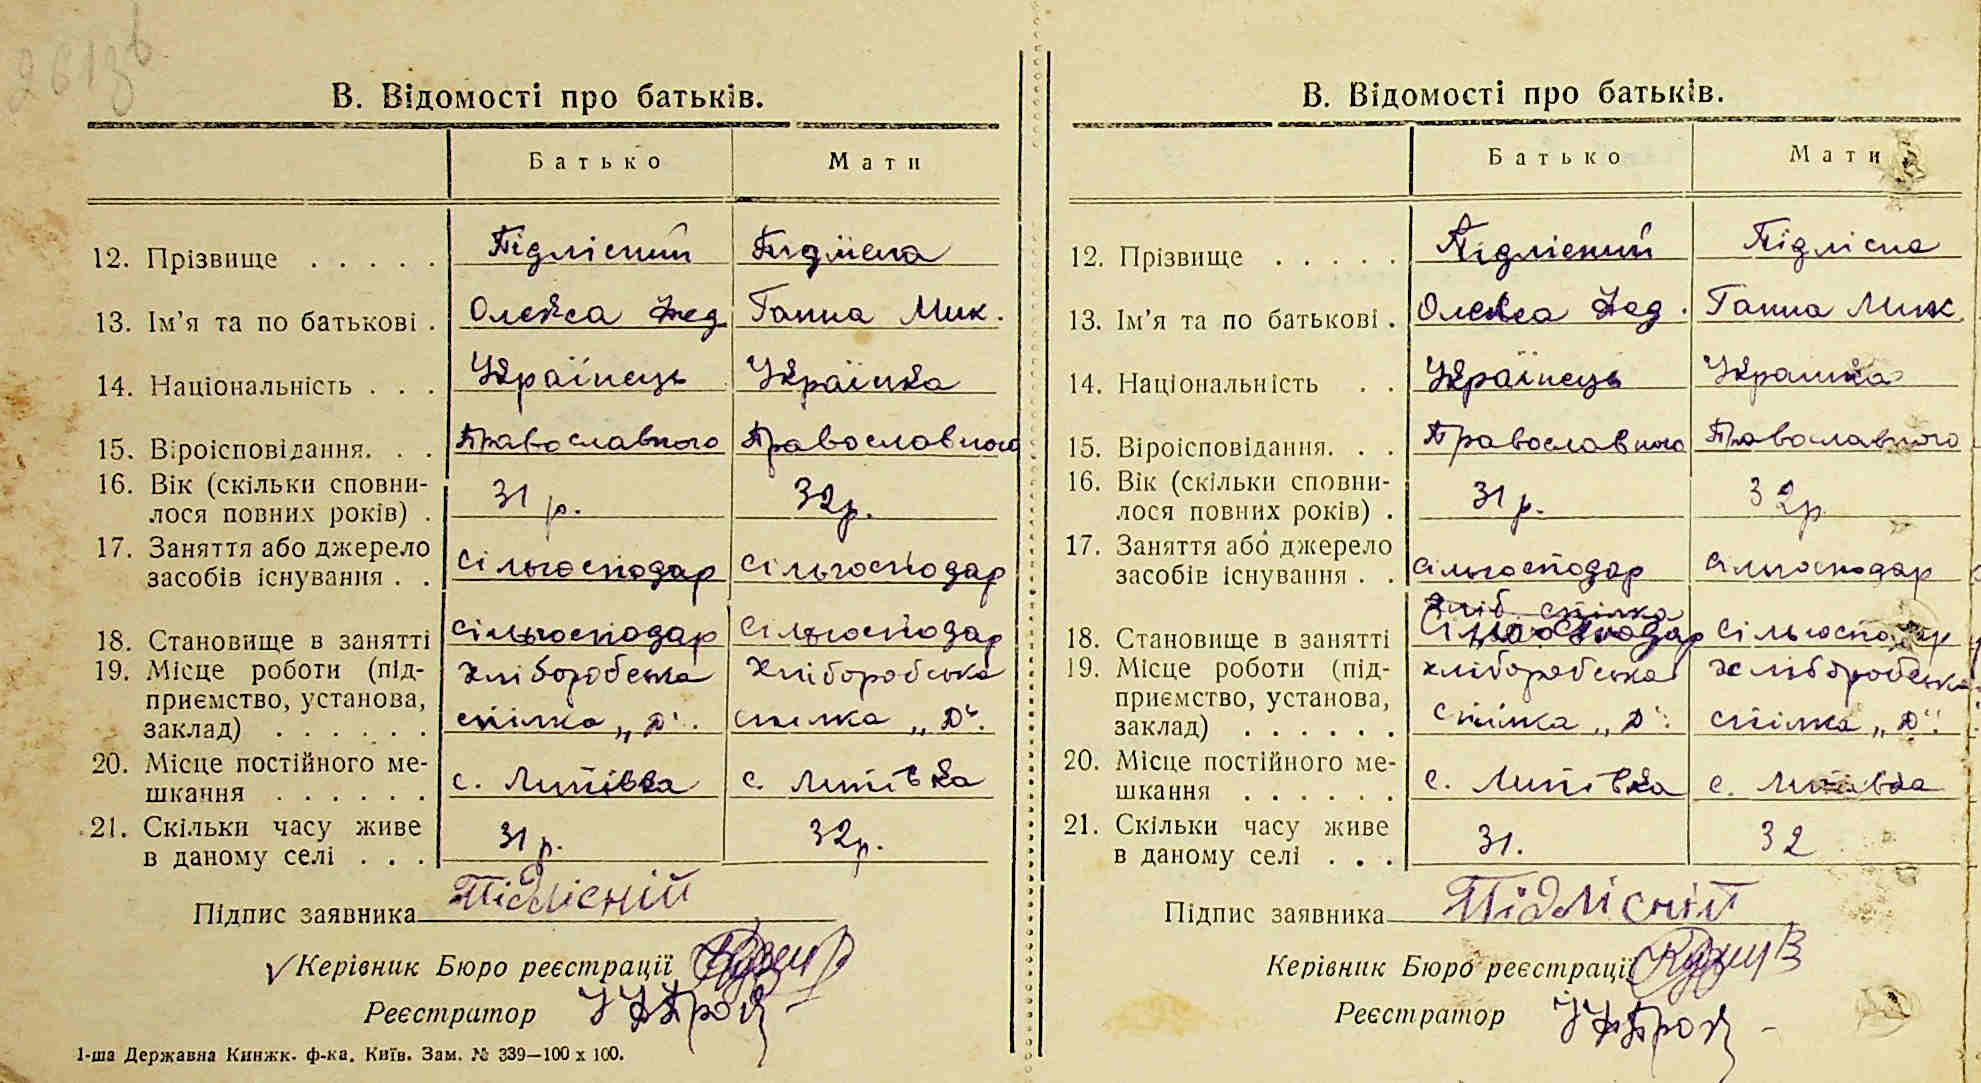 В. Відомості про батьків.
Батько Мати
12. Прізвище . . . . . Підлісний Підлісна
13. Ім'я та по батькові . Олекса Фед Ганна Мик.
14. Національність . . . Українець Українка
15. Віроісповідання. . . Православного Православного
16. Вік (скільки сповни-
лося повних років) . 31 р. 32р.
17. Заняття або джерело
засобів існування . . сільгосподар сільгосподар
18. Становище в занятті сільгосподар сільгосподар
19. Місце роботи (під- хліборобська хліборобська
приємство, установа,
заклад) . . . . . . спілка „Д“. спілка „Д“.
20. Місце постійного ме-
шкання . . . . . . с. Липівка с. Липівка
21. Скільки часу живе
в даному селі . . . 31 р. 32р.
Підпис заявника Підлісній
Керівник Бюро реєстрації
Реєстратор
1-ша Державна Кинжк. ф-ка. Київ. Зам. № 339—100 х 100.
В. Відомості про батьків.
Батько Мати
12. Прізвище . . . . . Підлісний Підлісна
13. Ім'я та по батькові . Олекса Фед. Ганна Мик.
14. Національність . . Українець Українка
15. Віроісповідання. . . Православного Православного
16. Вік (скільки сповни-
лося повних років) . 31 р. 32р
17. Заняття або джерело
засобів існування . . сільгосподар сільгосподар
хліб. спілка
18. Становище в занятті сільгосподар сільгосподар
19. Місце роботи (під- хліборобська хліборобська
приємство, установа,
заклад) . . . . . . спілка „Д“. спілка „Д“.
20. Місце постійного ме-
шкання . . . . . . с. Липівка с. Липівка
21. Скільки часу живе
в даному селі . . . 31. 32
Підпис заявника Підлісній
Керівник Бюро реєстрації
Реєстратор